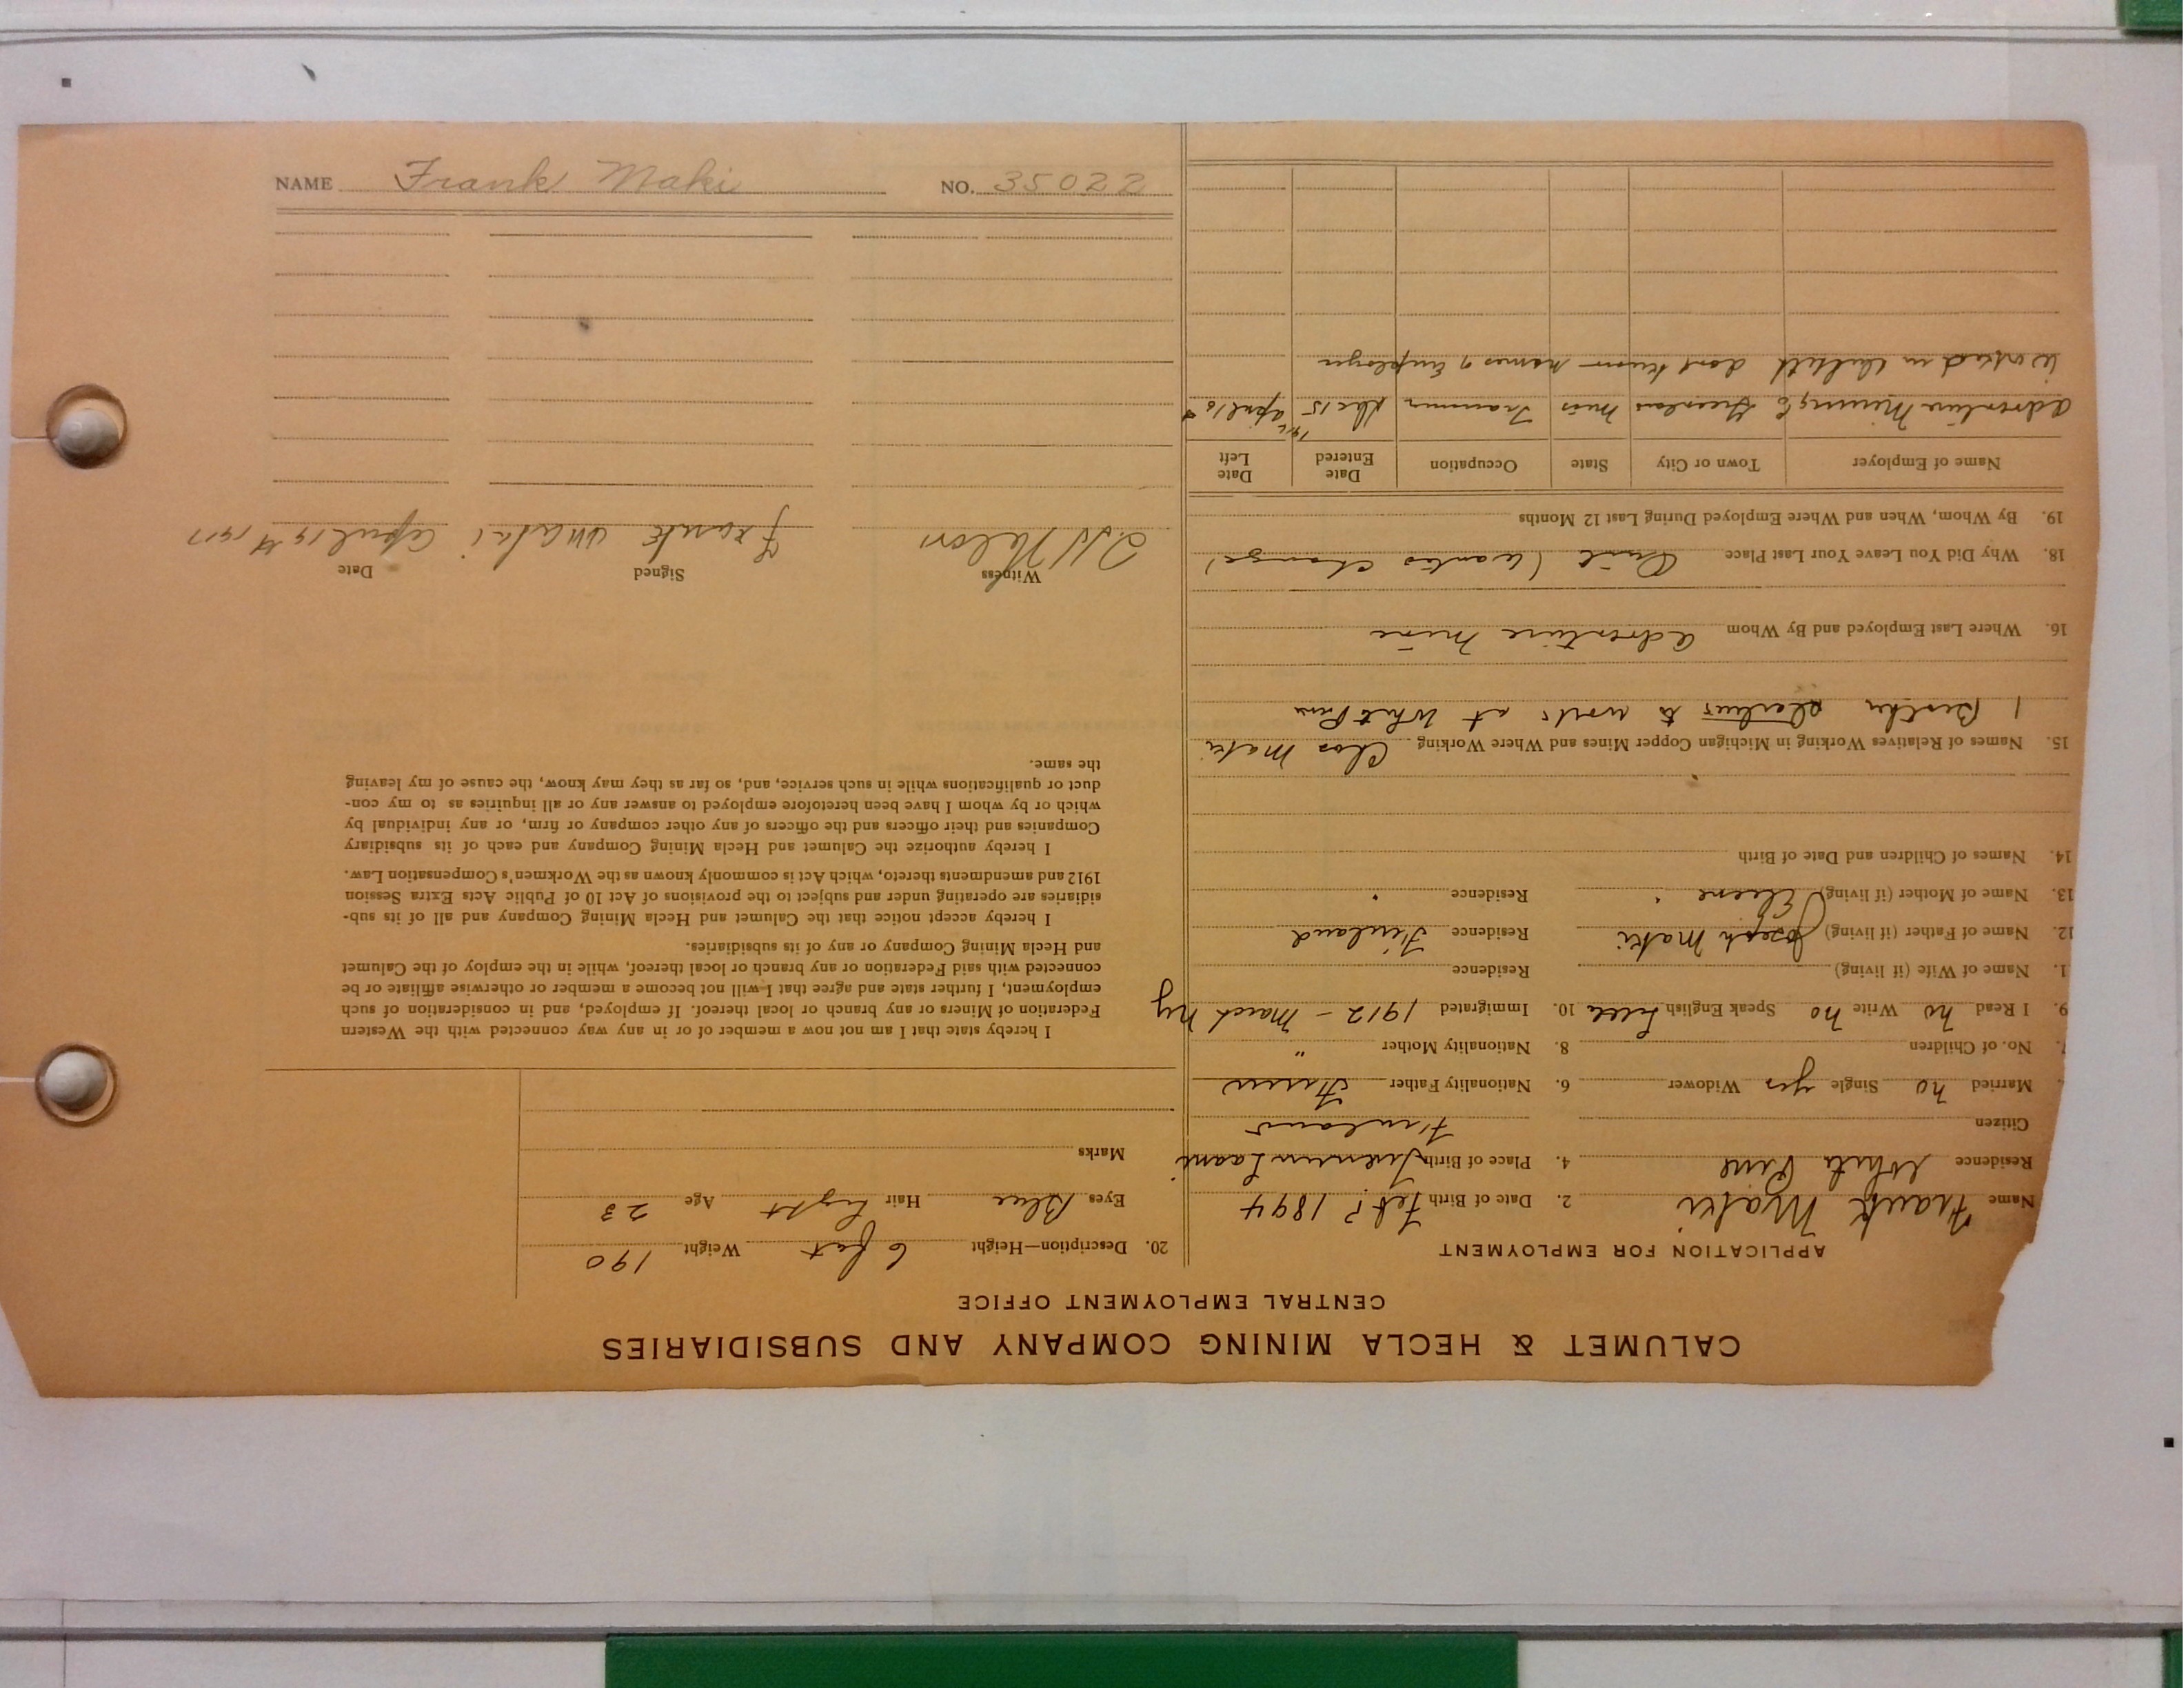 CALUMET & HECLA MINING COMPANY AND SUBSIDIARIES
CENTRAL EMPLOYMENT OFFICE
APPLICATION FOR EMPLOYMENT
Name Frank Maki 2. Date of Birth Feb ? 1894
Residence White Pine 4. Place of Birth
Citizen Finland
Married no Single yes Widower 6. Nationality Father Finn
7. No. of Children 8. Nationality Mother "
9. I Read no Write no Speak English Little 10. Immigrated 1912 - March NY
1. Name of Wife (if living) Residence
12. Name of Father (if living) Joseph Maki Residence Finland
13. Name of Mother (if living) " Residence "
14. Names of Children and Date of Birth
15. Names of Relatives Working in Michigan Copper Mines and Where Working Chas Maki
1 Brother to work at White Pine
16. Where Last Employed and By Whom Adventure Mine
18. Why Did You Leave Your Last Place Quit (wants change)
19. By Whom, When and Where Employed During Last 12 Months
Name of Employer Town or City State Occupation Date Entered Date Left
Adventure Mining Co Greenland Mich Trammer Dec 15 1916 April 16
Worked in dont know names of Employer
20. Description—Height 6 feet Weight 190
Eyes Blue Hair Light Age 23
Marks
I hereby state that I am not now a member of or in any way connected with the Western
Federation of Miners or any branch or local thereof. If employed, and in consideration of such
employment, I further state and agree that I will not become a member or otherwise affiliate or be
connected with said Federation or any branch or local thereof, while in the employ of the Calumet
and Hecla Mining Company or any of its subsidiaries.
I hereby accept notice that the Calumet and Hecla Mining Company and all of its sub-
sidiaries are operating under and subject to the provisions of Act 10 of Public Acts Extra Session
1912 and amendments thereto, which Act is commonly known as the Workmen's Compensation Law.
I hereby authorize the Calumet and Hecla Mining Company and each of its subsidiary
Companies and their officers and the officers of any other company or firm, or any individual by
which or by whom I have been heretofore employed to answer any or all inquiries as to my con-
duct or qualifications while in such service, and, so far as they may know, the cause of my leaving
the same.
Witness Signed Date
Frank Maki April 19th 1917
NAME Frank Maki NO. 35022